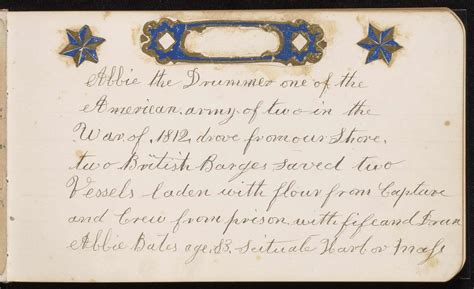 Abbie the Drummer one of the
American army of two in the
War of 1812 drove from our Shore
two British Barges saved two
Vessels laden with flour from Capture
and Crew from prison with fife and Drum
Abbie Bates age 83. Scituate Harbor Mass